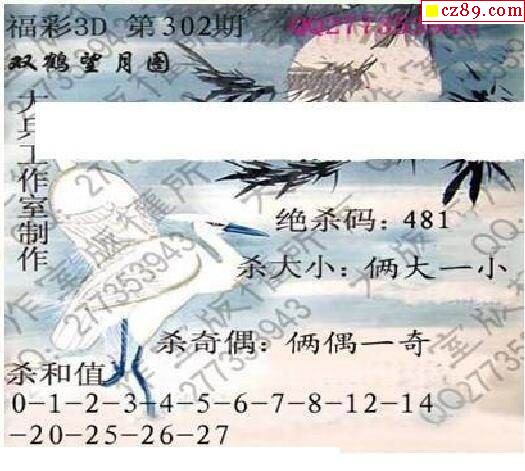 cz89.com
福彩3D 第302期
QQ277353943
双鹤望月图
大兵工作室制作
绝杀码：481
杀大小：俩大一小
杀奇偶：俩偶一奇
杀和值
0-1-2-3-4-5-6-7-8-12-14
-20-25-26-27
大兵工作室版权所有
QQ277353943